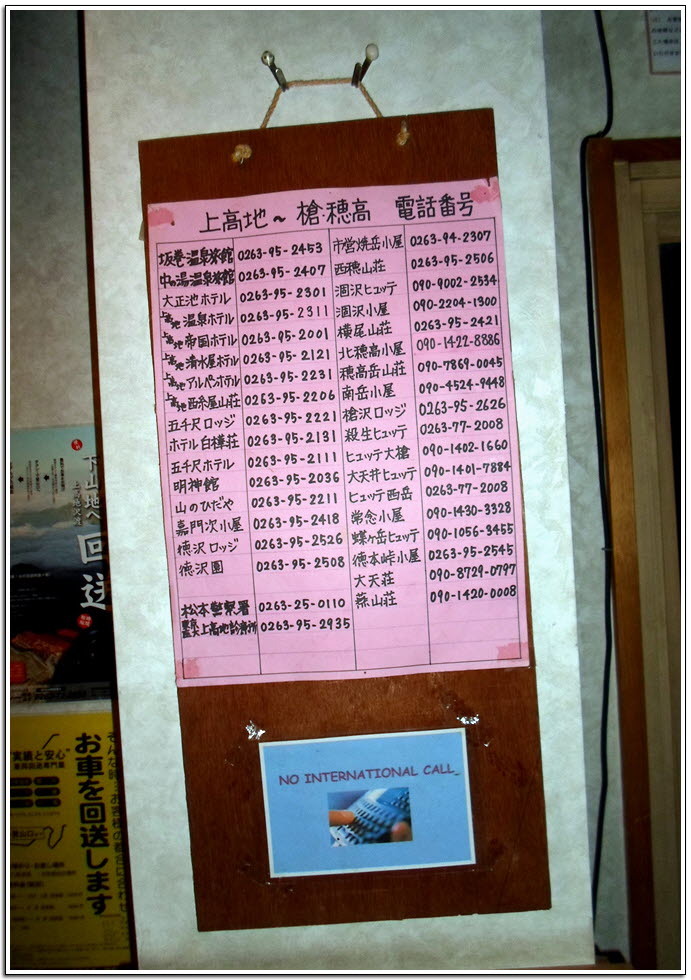 上高地～槍・穂高 電話番号
坂巻温泉旅館 0263-95-2453
中の湯温泉旅館 0263-95-2407
大正池ホテル 0263-95-2301
上高地温泉ホテル 0263-95-2311
上高地帝国ホテル 0263-95-2001
上高地清水屋ホテル 0263-95-2121
上高地アルペンホテル 0263-95-2231
上高地西糸屋山荘 0263-95-2206
五千尺ロッジ 0263-95-2221
ホテル白樺荘 0263-95-2131
五千尺ホテル 0263-95-2111
明神館 0263-95-2036
山のひだや 0263-95-2211
嘉門次小屋 0263-95-2418
徳沢ロッジ 0263-95-2526
徳沢園 0263-95-2508
松本警察署 0263-25-0110
東京医大上高地診療所 0263-95-2935
市営焼岳小屋 0263-94-2307
西穂山荘 0263-95-2506
涸沢ヒュッテ 090-9002-2534
涸沢小屋 090-2204-1300
横尾山荘 0263-95-2421
北穂高小屋 090-1422-8886
穂高岳山荘 090-7869-0045
南岳小屋 090-4524-9448
槍沢ロッジ 0263-95-2626
殺生ヒュッテ 0263-77-2008
ヒュッテ大槍 090-1402-1660
大天井ヒュッテ 090-1401-7884
ヒュッテ西岳 0263-77-2008
常念小屋 090-1430-3328
蝶ヶ岳ヒュッテ 090-1056-3455
徳本峠小屋 0263-95-2545
大天荘 090-8729-0797
燕山荘 090-1420-0008
NO INTERNATIONAL CALL
下山地へ
回送
"実績と安心"
お車を回送します